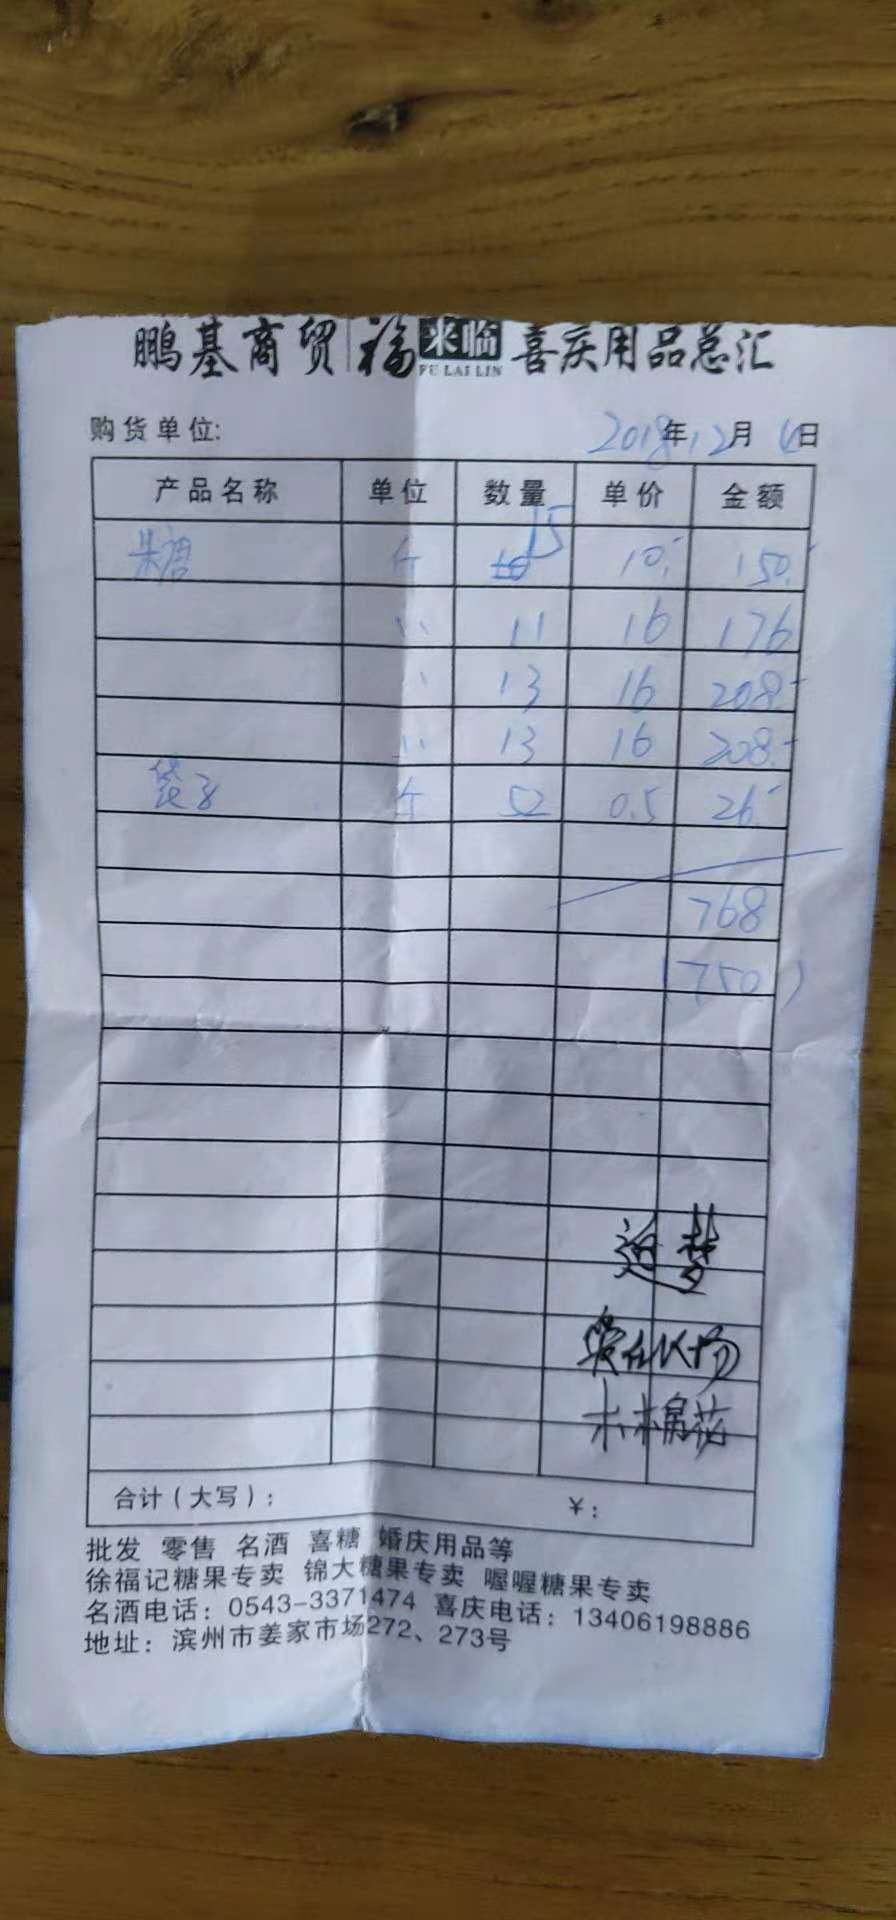 鹏基商贸 福来临 FU LAI LIN 喜庆用品总汇
购货单位: 2018年12月 日
产品名称 单位 数量 单价 金额
糖 个 15 10.- 150.-
〃 11 16 176
〃 13 16 208.-
〃 13 16 208.-
袋子 个 52 0.5 26.-
768
(750)
追梦
爱在公场
木棉花
合计（大写）: ¥:
批发 零售 名酒 喜糖 婚庆用品等
徐福记糖果专卖 锦大糖果专卖 喔喔糖果专卖
名酒电话: 0543-3371474 喜庆电话: 13406198886
地址: 滨州市姜家市场272、273号